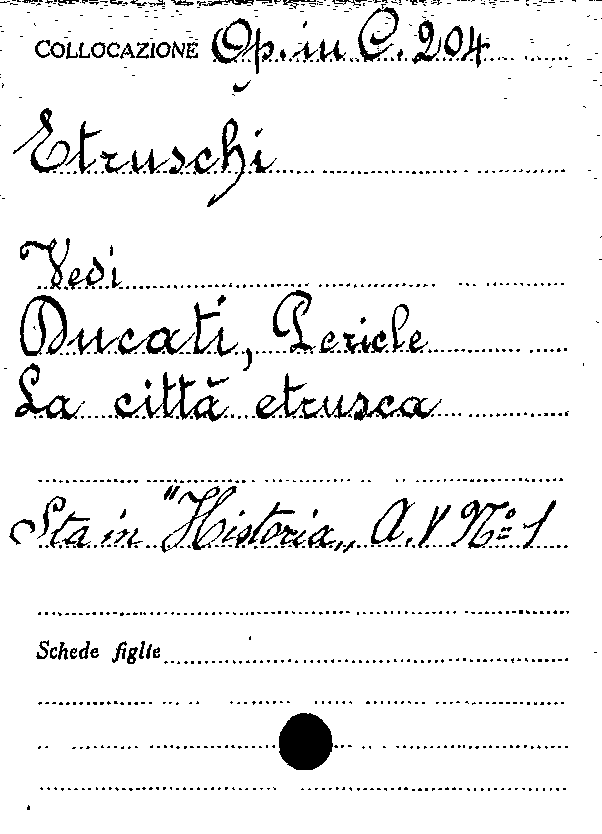 COLLOCAZIONE Op. in C. 204
Etruschi
Vedi
Ducati, Pericle
La città etrusca
Sta in "Historia„ A. V Nº 1
Schede figlie